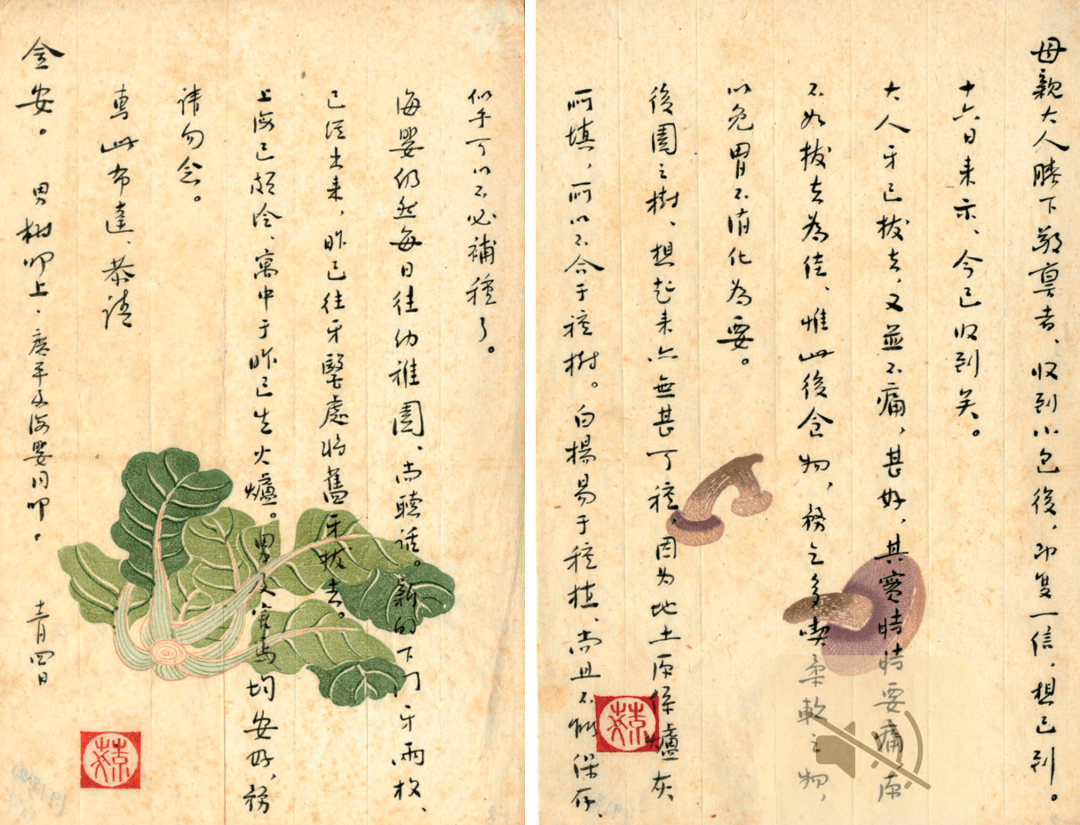 母親大人膝下敬禀者、収到小包後，即复一信，想已到。
十六日来示、今已収到矣。
大人牙已拔去，又並不痛，甚好，其實時時要痛，原
不如拔去為佳、惟此後食物，務乞多喫柔軟之物，
以免胃不消化為要。
後園之樹、想起来亦無甚可種，因为地土原係爐灰
所填，所以不合于種樹。白楊易于種植、尚且不能保存，
似乎可以不必補種了。
海嬰仍然每日往幼稚園、尚聽話。新的下門牙兩枚、
已経出来，昨已往牙醫處将舊牙拔去。
上海已頗冷、寓中于昨已生火爐。男及害馬均安好，務
請勿念。
專此布達、恭請
金安。 男樹叩上，廣平及海嬰同叩。 十二月四日